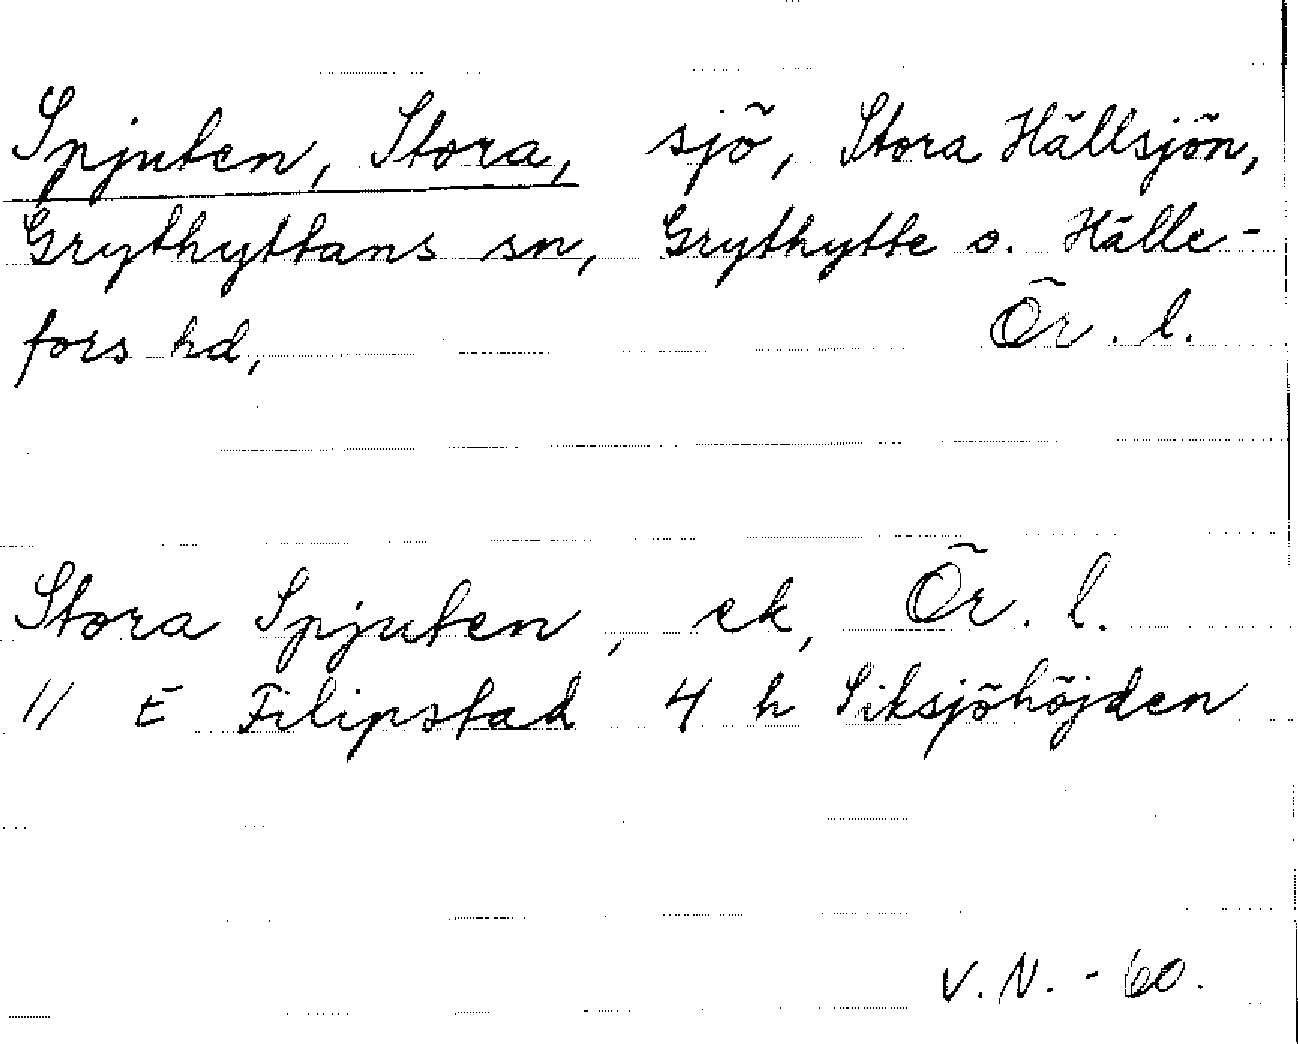 Spjuten, Stora, sjö, Stora Hällsjön,
Grythyttans sn, Grythytte o. Hälle-
fors hd, Ör. l.
Stora Spjuten, ek, Ör. l.
11 E Filipstad 4 h Siksjöhöjden
V.N. - 60.